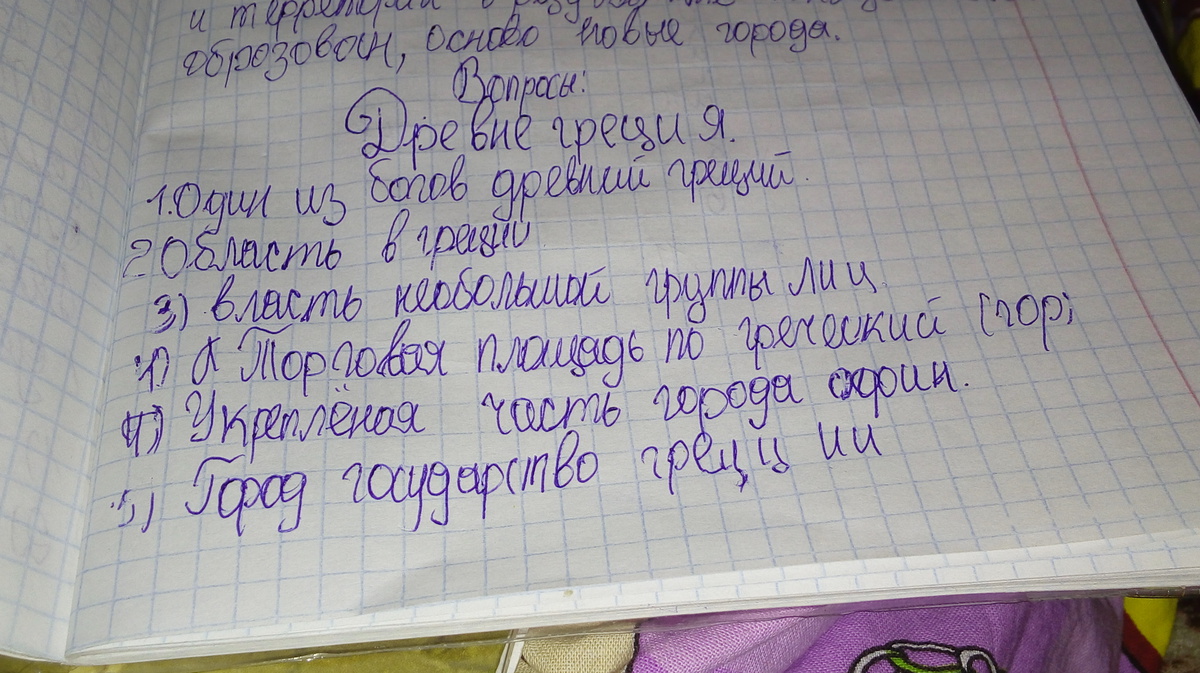 и территории
образован, осново новые города.
Вопросы:
Древне греция.
1. Один из богов древний греций.
2 Область в греции
3) власть небольшой группы лиц.
4) А Торговая площадь по греческий (гор;
4) Укреплёная часть города афин.
5) Город государство греции